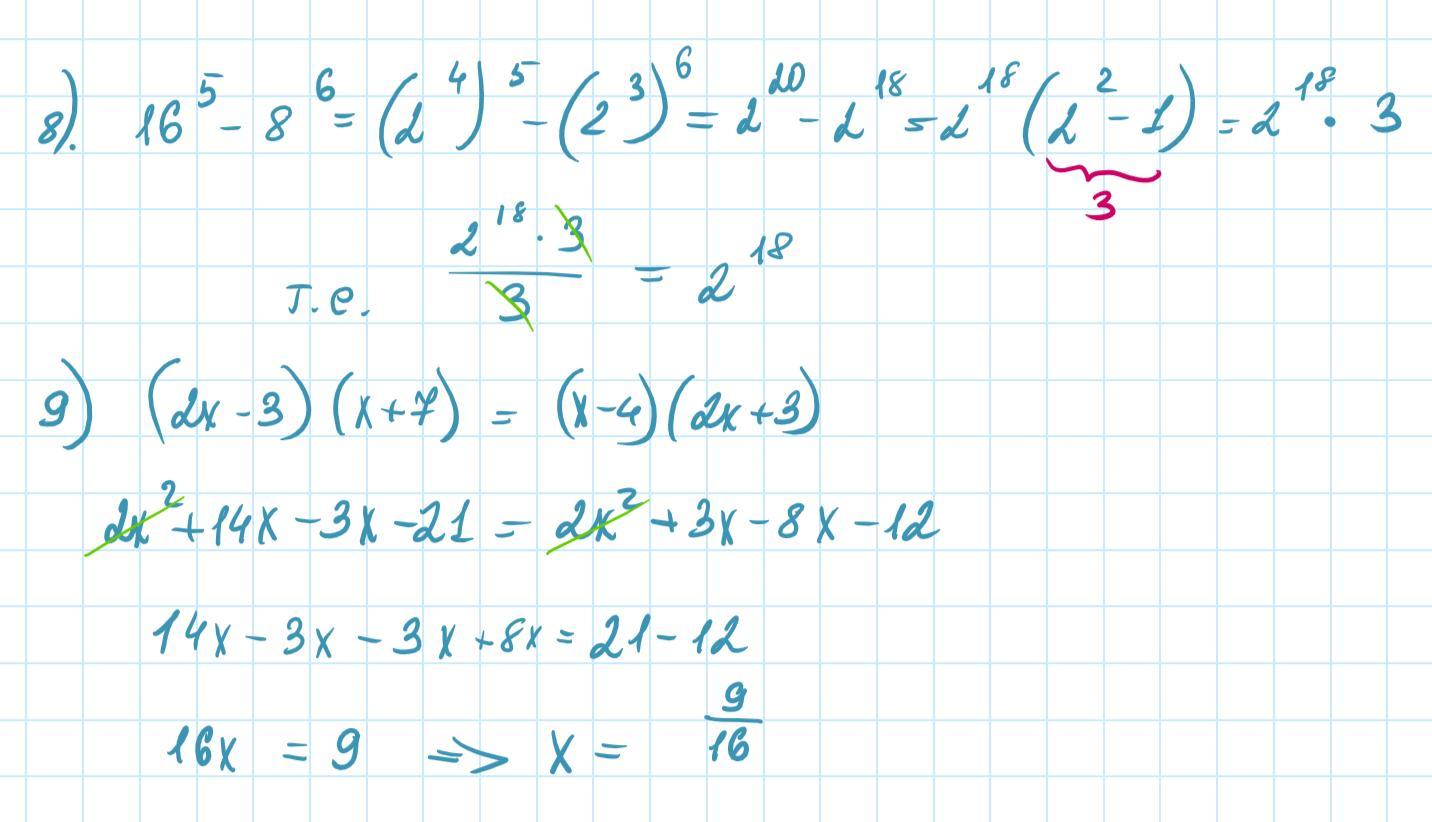 8). 16⁵ - 8⁶ = (2⁴)⁵ - (2³)⁶ = 2²⁰ - 2¹⁸ = 2¹⁸ (2² - 1) = 2¹⁸ · 3
3
т.е. (2¹⁸ · 3)/3 = 2¹⁸
9) (2x - 3)(x + 7) = (x - 4)(2x + 3)
2x² + 14x - 3x - 21 = 2x² + 3x - 8x - 12
14x - 3x - 3x + 8x = 21 - 12
16x = 9 => x = 9/16